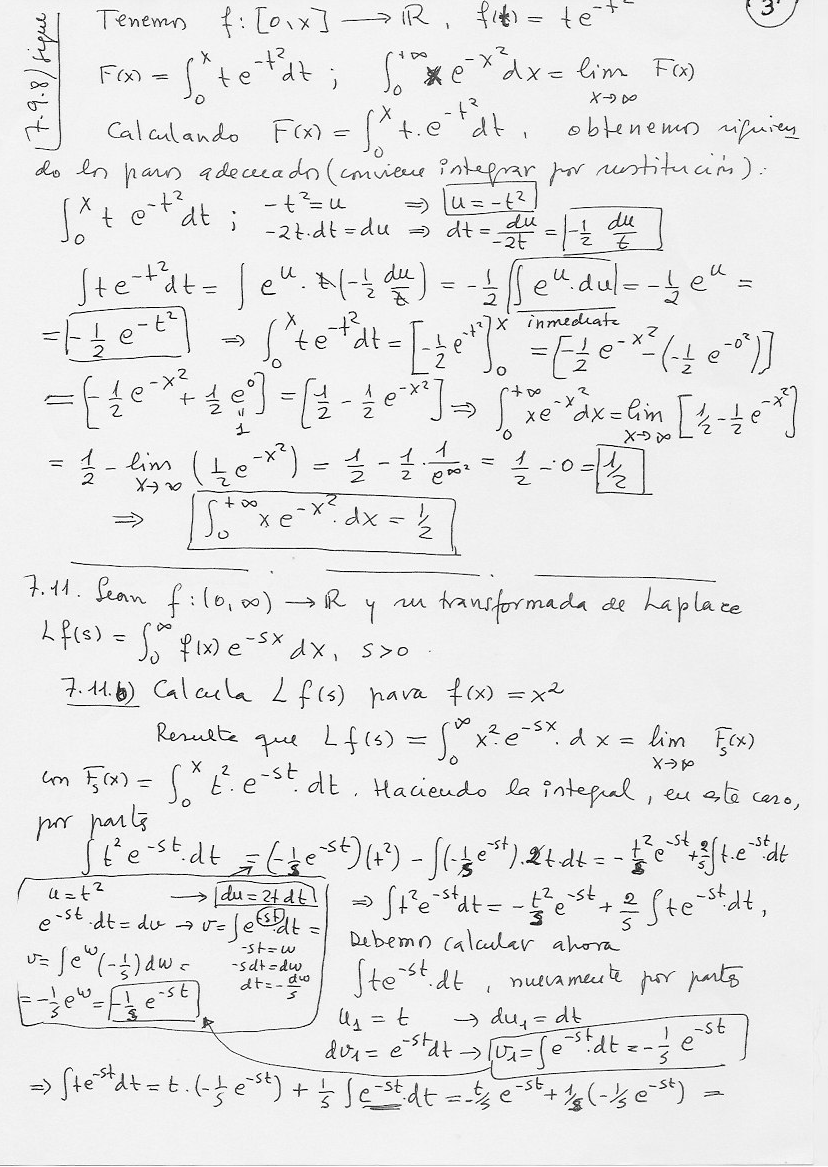 3
7.9.8/sigue
Tenemos f: [0,x] → ℝ, f(t) = te^{-t²}
F(x) = ∫₀ˣ te^{-t²}dt ; ∫₀^{+∞} xe^{-x²}dx = lim_{x→∞} F(x)
Calculando F(x) = ∫₀ˣ t.e^{-t²}dt, obtenemos siguien
do los pasos adecuados (conviene integrar por sustitución):
∫₀ˣ t e^{-t²}dt ; -t² = u ⇒ u = -t²
-2t·dt = du ⇒ dt = du/-2t = -1/2 du/t
∫te^{-t²}dt = ∫e^u · t(-1/2 du/t) = -1/2 ∫e^u·du = -1/2 e^u =
inmediata
= -1/2 e^{-t²} ⇒ ∫₀ˣ te^{-t²}dt = [-1/2 e^{-t²}]₀ˣ = [-1/2 e^{-x²} - (-1/2 e^{-0²})]
= [-1/2 e^{-x²} + 1/2 e⁰] = [1/2 - 1/2 e^{-x²}] ⇒ ∫₀^{+∞} xe^{-x²}dx = lim_{x→∞} [1/2 - 1/2 e^{-x²}]
" 1
= 1/2 - lim_{x→∞} (1/2 e^{-x²}) = 1/2 - 1/2 · 1/e^{∞²} = 1/2 - 0 = 1/2
⇒ ∫₀^{+∞} x e^{-x²}·dx = 1/2
7.11. Sean f: (0,∞) → ℝ y su transformada de Laplace
Lf(s) = ∫₀^∞ f(x) e^{-sx} dx, s>0.
7.11.b) Calcula Lf(s) para f(x) = x²
Resulta que Lf(s) = ∫₀^∞ x²·e^{-sx}·dx = lim_{x→∞} F_s(x)
con F_s(x) = ∫₀ˣ t²·e^{-st}·dt. Haciendo la integral, en este caso,
por partes
∫t² e^{-st}·dt = (-1/s e^{-st})(t²) - ∫(-1/s e^{-st})·2t·dt = -t²/s e^{-st} + 2/s ∫t·e^{-st}·dt
u = t² → du = 2t dt
e^{-st}·dt = dv → v = ∫e^{-st}dt =
-st = w
-sdt = dw
dt = -dw/s
v = ∫e^w(-1/s)dw =
= -1/s e^w = -1/s e^{-st}
⇒ ∫t²e^{-st}dt = -t²/s e^{-st} + 2/s ∫te^{-st}·dt,
Debemos calcular ahora
∫te^{-st}·dt, nuevamente por partes
u₁ = t → du₁ = dt
dv₁ = e^{-st}dt → v₁ = ∫e^{-st}·dt = -1/s e^{-st}
⇒ ∫te^{-st}dt = t·(-1/s e^{-st}) + 1/s ∫e^{-st}·dt = -t/s e^{-st} + 1/s(-1/s e^{-st}) =